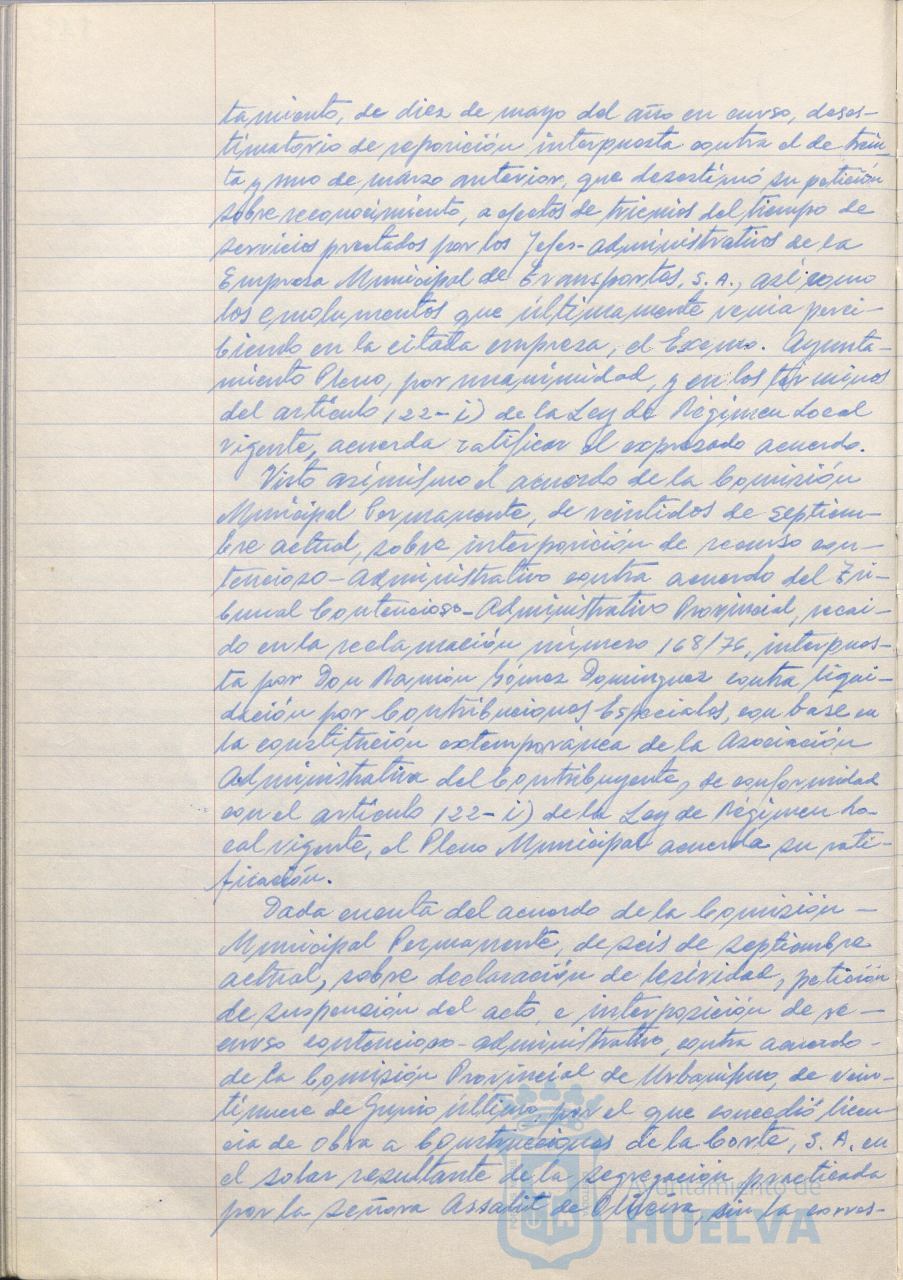 tamiento, de diez de mayo del año en curso, deses-
timatorio de reposición interpuesta contra el de trein-
ta y uno de marzo anterior, que desestimó su petición
sobre reconocimiento, a efectos de trienios del tiempo de
servicios prestados por los Jefes-administrativos de la
Empresa Municipal de Transportes, S.A., así como
los emolumentos que últimamente venía perci-
biendo en la citada empresa, el Excmo. Ayunta-
miento Pleno, por unanimidad, y en los términos
del artículo 122-i) de la Ley de Régimen Local
vigente, acuerda ratificar el expresado acuerdo.
Visto asímismo el acuerdo de la Comisión
Municipal Permanente, de veintidos de septiem-
bre actual, sobre interposición de recurso con-
tencioso-administrativo contra acuerdo del Tri-
bunal Contencioso-Administrativo Provincial, recaí-
do en la reclamación número 168/76, interpues-
ta por Don Ramón Gómez Domínguez contra liqui-
dación por Contribuciones Especiales, con base en
la constitución extemporánea de la Asociación
Administrativa del Contribuyente, de conformidad
con el artículo 122-i) de la Ley de Régimen Lo-
cal vigente, el Pleno Municipal acuerda su rati-
ficación.
Dada cuenta del acuerdo de la Comisión -
Municipal Permanente, de seis de septiembre
actual, sobre declaración de lesividad, petición
de suspensión del acto, e interposición de re-
curso contencioso-administrativo, contra acuerdo -
de la Comisión Provincial de Urbanismo, de vein-
tinueve de Junio último, por el que concedió licen-
cia de obra a Construcciones de la Corte, S.A. en
el solar resultante de la segregación practicada
por la señora Assalit de Oliveira, sin la corres-
Ayuntamiento de
HUELVA